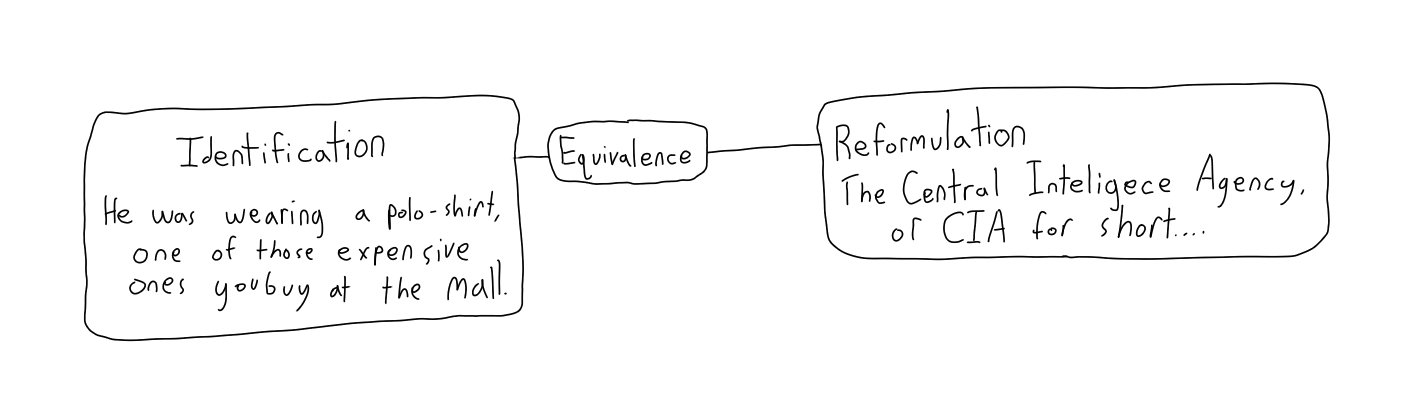 Identification
He was wearing a polo-shirt,
one of those expensive
ones you buy at the mall.
Equivalence
Reformulation
The Central Inteligece Agency,
or CIA for short....